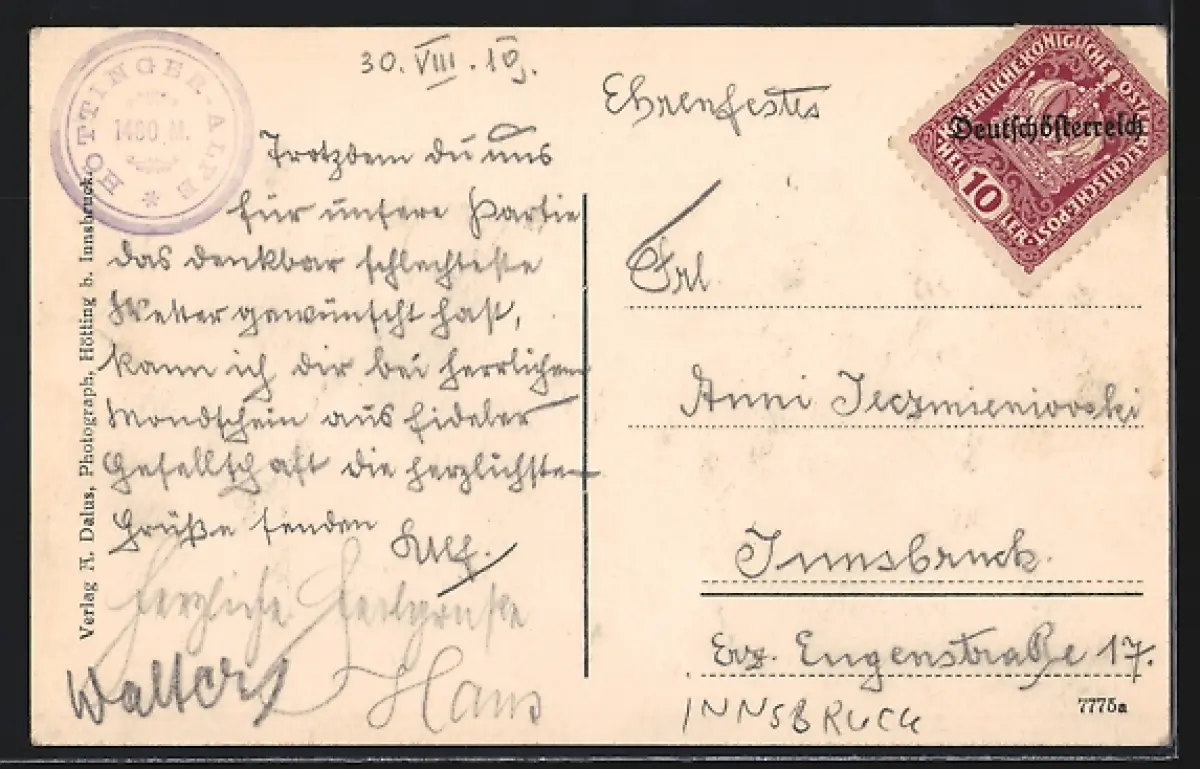 HÖTTINGER-ALPE
1480 M.
30. VIII. 19.
Trotzdem du uns
für unsere Partie
das denkbar schlechteste
Wetter gewünscht hast,
kann ich dir bei herrlichem
Mondschein aus fideler
Gesellschaft die herzlichsten
Grüße senden
Herzliche
Walter
Hans
Verlag A. Dalus, Photograph, Hötting b. Innsbruck.
Ehrenfestes
KAISERLICHE KÖNIGLICHE ÖSTERREICHISCHE POST
Deutschösterreich
HELLER
10
Frl.
Anni Jeczmieniowski
Innsbruck.
Erz. Eugenstraße 17.
INNSBRUCK
7775a